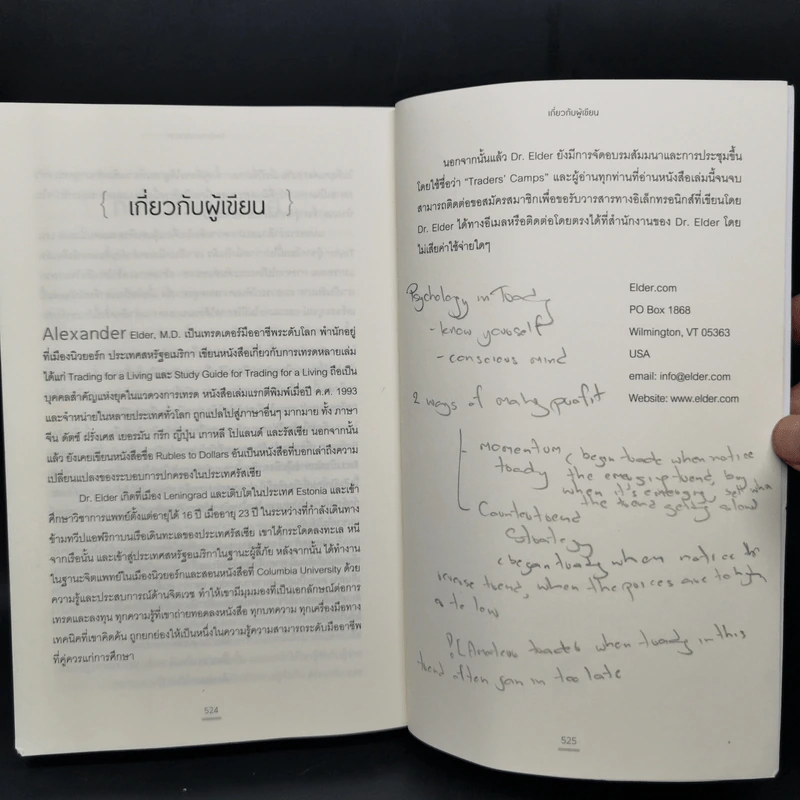 { เกี่ยวกับผู้เขียน }
Alexander Elder, M.D. เป็นเทรดเดอร์มืออาชีพระดับโลก พำนักอยู่
ที่เมืองนิวยอร์ก ประเทศสหรัฐอเมริกา เขียนหนังสือเกี่ยวกับการเทรดหลายเล่ม
ได้แก่ Trading for a Living และ Study Guide for Trading for a Living ถือเป็น
บุคคลสำคัญแห่งยุคในแวดวงการเทรด หนังสือเล่มแรกตีพิมพ์เมื่อปี ค.ศ. 1993
และจำหน่ายในหลายประเทศทั่วโลก ถูกแปลไปสู่ภาษาอื่นๆ มากมาย ทั้ง ภาษา
จีน ดัตช์ ฝรั่งเศส เยอรมัน กรีก ญี่ปุ่น เกาหลี โปแลนด์ และรัสเซีย นอกจากนั้น
แล้ว ยังเคยเขียนหนังสือชื่อ Rubles to Dollars อันเป็นหนังสือที่บอกเล่าถึงความ
เปลี่ยนแปลงของระบอบการปกครองในประเทศรัสเซีย
Dr. Elder เกิดที่เมือง Leningrad และเติบโตในประเทศ Estonia และเข้า
ศึกษาวิชาการแพทย์ตั้งแต่อายุได้ 16 ปี เมื่ออายุ 23 ปี ในระหว่างที่กำลังเดินทาง
ข้ามทวีปแอฟริกาบนเรือเดินทะเลของประเทศรัสเซีย เขาได้กระโดดลงทะเล หนี
จากเรือนั้น และเข้าสู่ประเทศสหรัฐอเมริกาในฐานะผู้ลี้ภัย หลังจากนั้น ได้ทำงาน
ในฐานะจิตแพทย์ในเมืองนิวยอร์กและสอนหนังสือที่ Columbia University ด้วย
ความรู้และประสบการณ์ด้านจิตเวช ทำให้เขามีมุมมองที่เป็นเอกลักษณ์ต่อการ
เทรดและลงทุน ทุกความรู้ที่เขาถ่ายทอดลงหนังสือ ทุกบทความ ทุกเครื่องมือทาง
เทคนิคที่เขาคิดค้น ถูกยกย่องให้เป็นหนึ่งในความรู้ความสามารถระดับมืออาชีพ
ที่คู่ควรแก่การศึกษา
524
เกี่ยวกับผู้เขียน
นอกจากนั้นแล้ว Dr. Elder ยังมีการจัดอบรมสัมมนาและการประชุมขึ้น
โดยใช้ชื่อว่า "Traders' Camps" และผู้อ่านทุกท่านที่อ่านหนังสือเล่มนี้จนจบ
สามารถติดต่อขอสมัครสมาชิกเพื่อขอรับวารสารทางอิเล็กทรอนิกส์ที่เขียนโดย
Dr. Elder ได้ทางอีเมลหรือติดต่อโดยตรงได้ที่สำนักงานของ Dr. Elder โดย
ไม่เสียค่าใช้จ่ายใดๆ
Elder.com
PO Box 1868
Wilmington, VT 05363
USA
email: info@elder.com
Website: www.elder.com
Psychology in
- know yourself
- conscious mind
2 ways of making profit
momentum (began trade when notice
the trend, buy
when it's emerging, sell when
the trend getting slow
Countertrend
Strategy
when notice
trend, when the prices are too high
too low
when in this
trend often join in too late
525